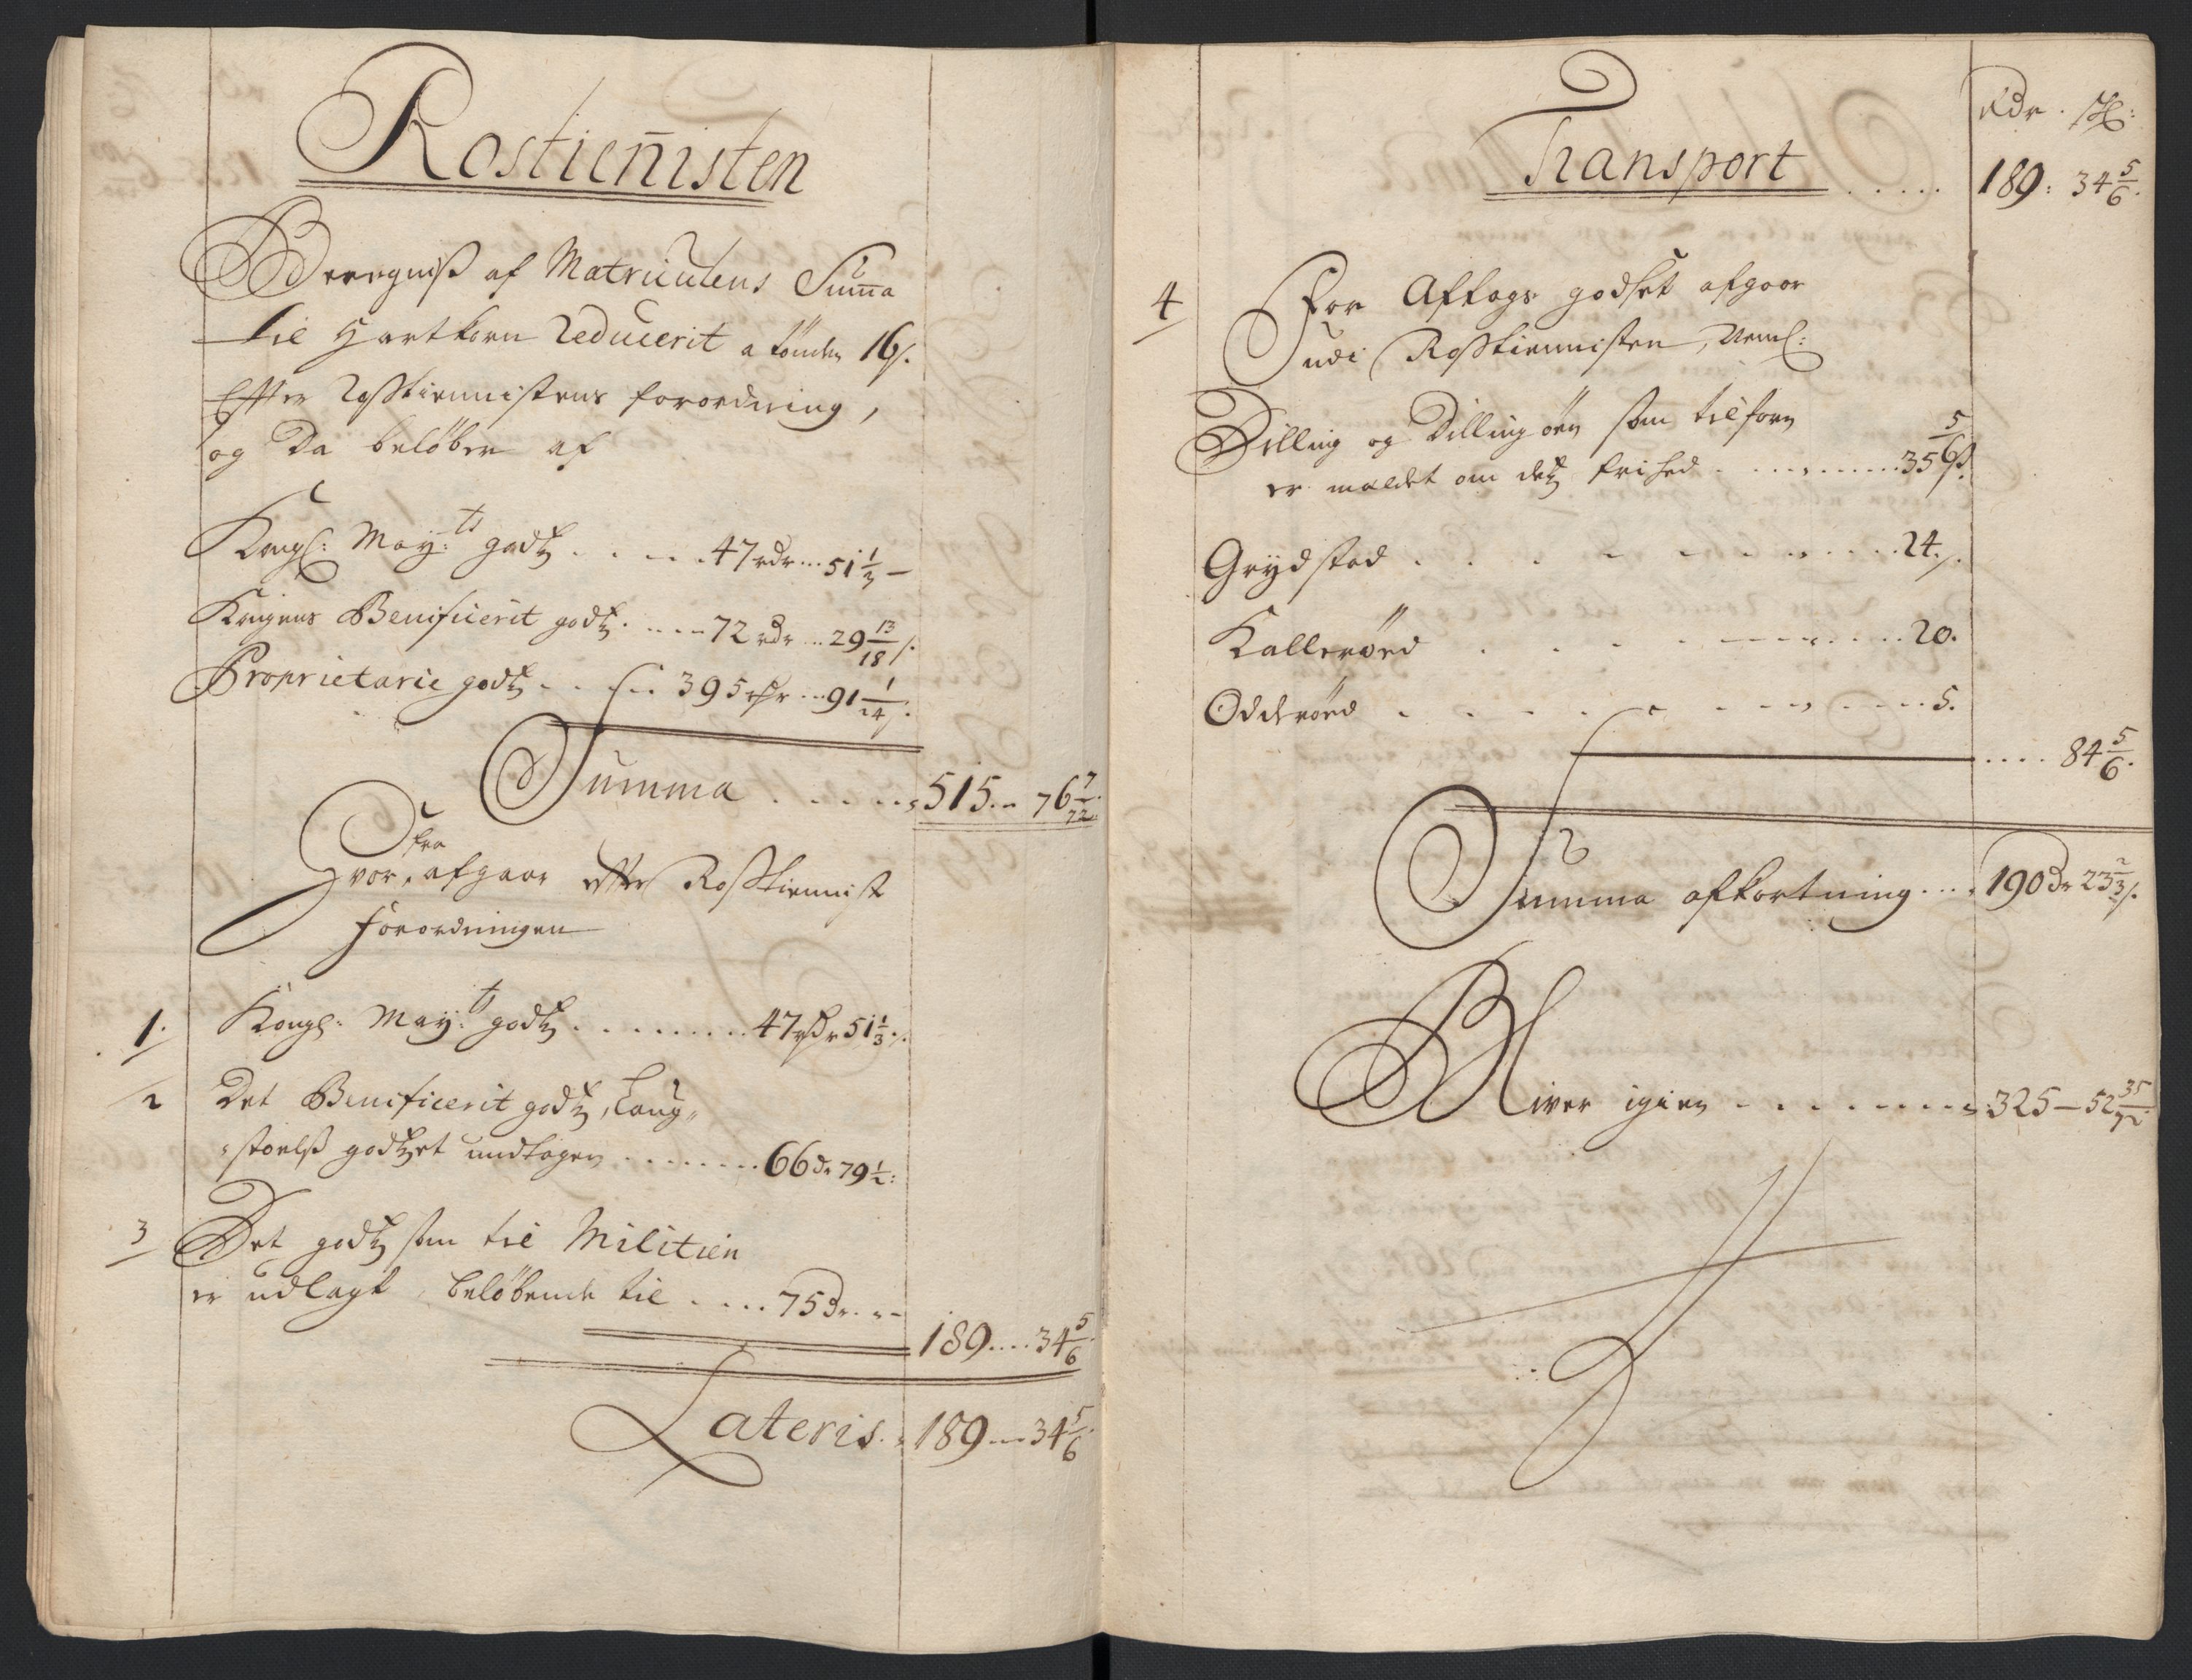 Rostienisten
Beregnisß af Matriculens Suma
til Hartkorn Reducerit a tönden 16 s.
Effter Rosstiennistens forordning,
og Da beløber af
Kongl: May:ts godtz . . . . . 47 rdr ... 51 1/3 –
Kongens Benificerit godtz . ..... 72 rdr ... 29 13/18 s.
Proprietarie godtz . . . . . 395 rdr ... 91 1/24 s.
Summa . . . . . . 515. – 76 7/72.
fra
Hvor, afgaar effter Rosstiennist
forordningen
1. Kongl: May:ts godtz . . . . . . . . . 47 rdr 51 1/3 s.
2 Det Benificerit godtz, Laug-
-stoelß godtzet undtagen . . . . . . . . 66 dr 79 1/2:
3 Det godtz som til Militien
er udlagt, beløbende til . . . . 75 Dr. . –
189 .... 34 5/6.
Lateris . . 189 --- 34 5/6.
Rdr . s:
Transport . . . . . 189: 34 5/6.
4 For Aftags godset afgaar
udi Rosstiennisten, Neml:
Dilling og Dilling öen som tilforn
er meldet om detz frihed . . . . . . . . . 35 5/6 s.
Grydstad . . . . . . . . . . . . 24 s.
Kalleröed . . . . . . . . . . . 20.
Odderöed . . . . . . . . . . . . 5.
.... 84 5/6.
Summa afkortning . . . . 190 Dr 23 2/3 s.
Bliver igien . . . . . . . . . 325 – 52 35/72